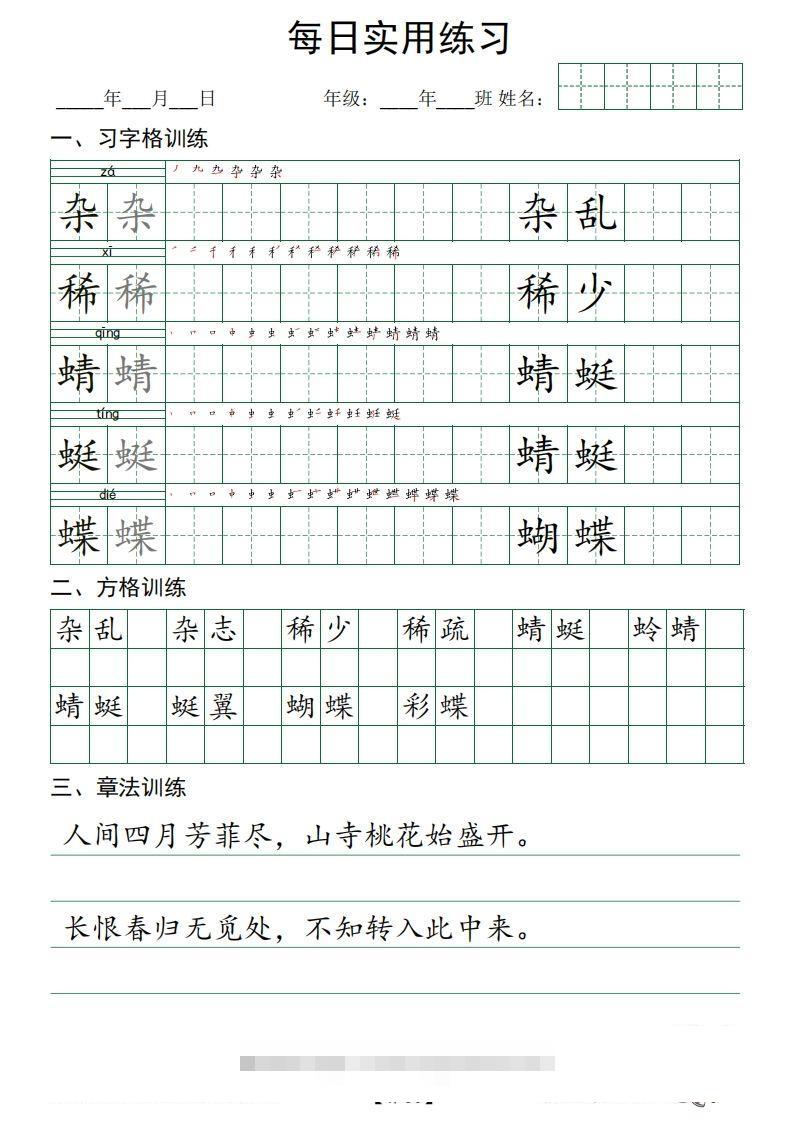 每日实用练习
_____年___月___日 年级：____年____班 姓名：
一、习字格训练
zá
杂 杂 杂 乱
xī
稀 稀 稀 少
qīng
蜻 蜻 蜻 蜓
tíng
蜓 蜓 蜻 蜓
dié
蝶 蝶 蝴 蝶
二、方格训练
杂乱 杂志 稀少 稀疏 蜻蜓 蛉蜻
蜻蜓 蜓翼 蝴蝶 彩蝶
三、章法训练
人间四月芳菲尽，山寺桃花始盛开。
长恨春归无觅处，不知转入此中来。